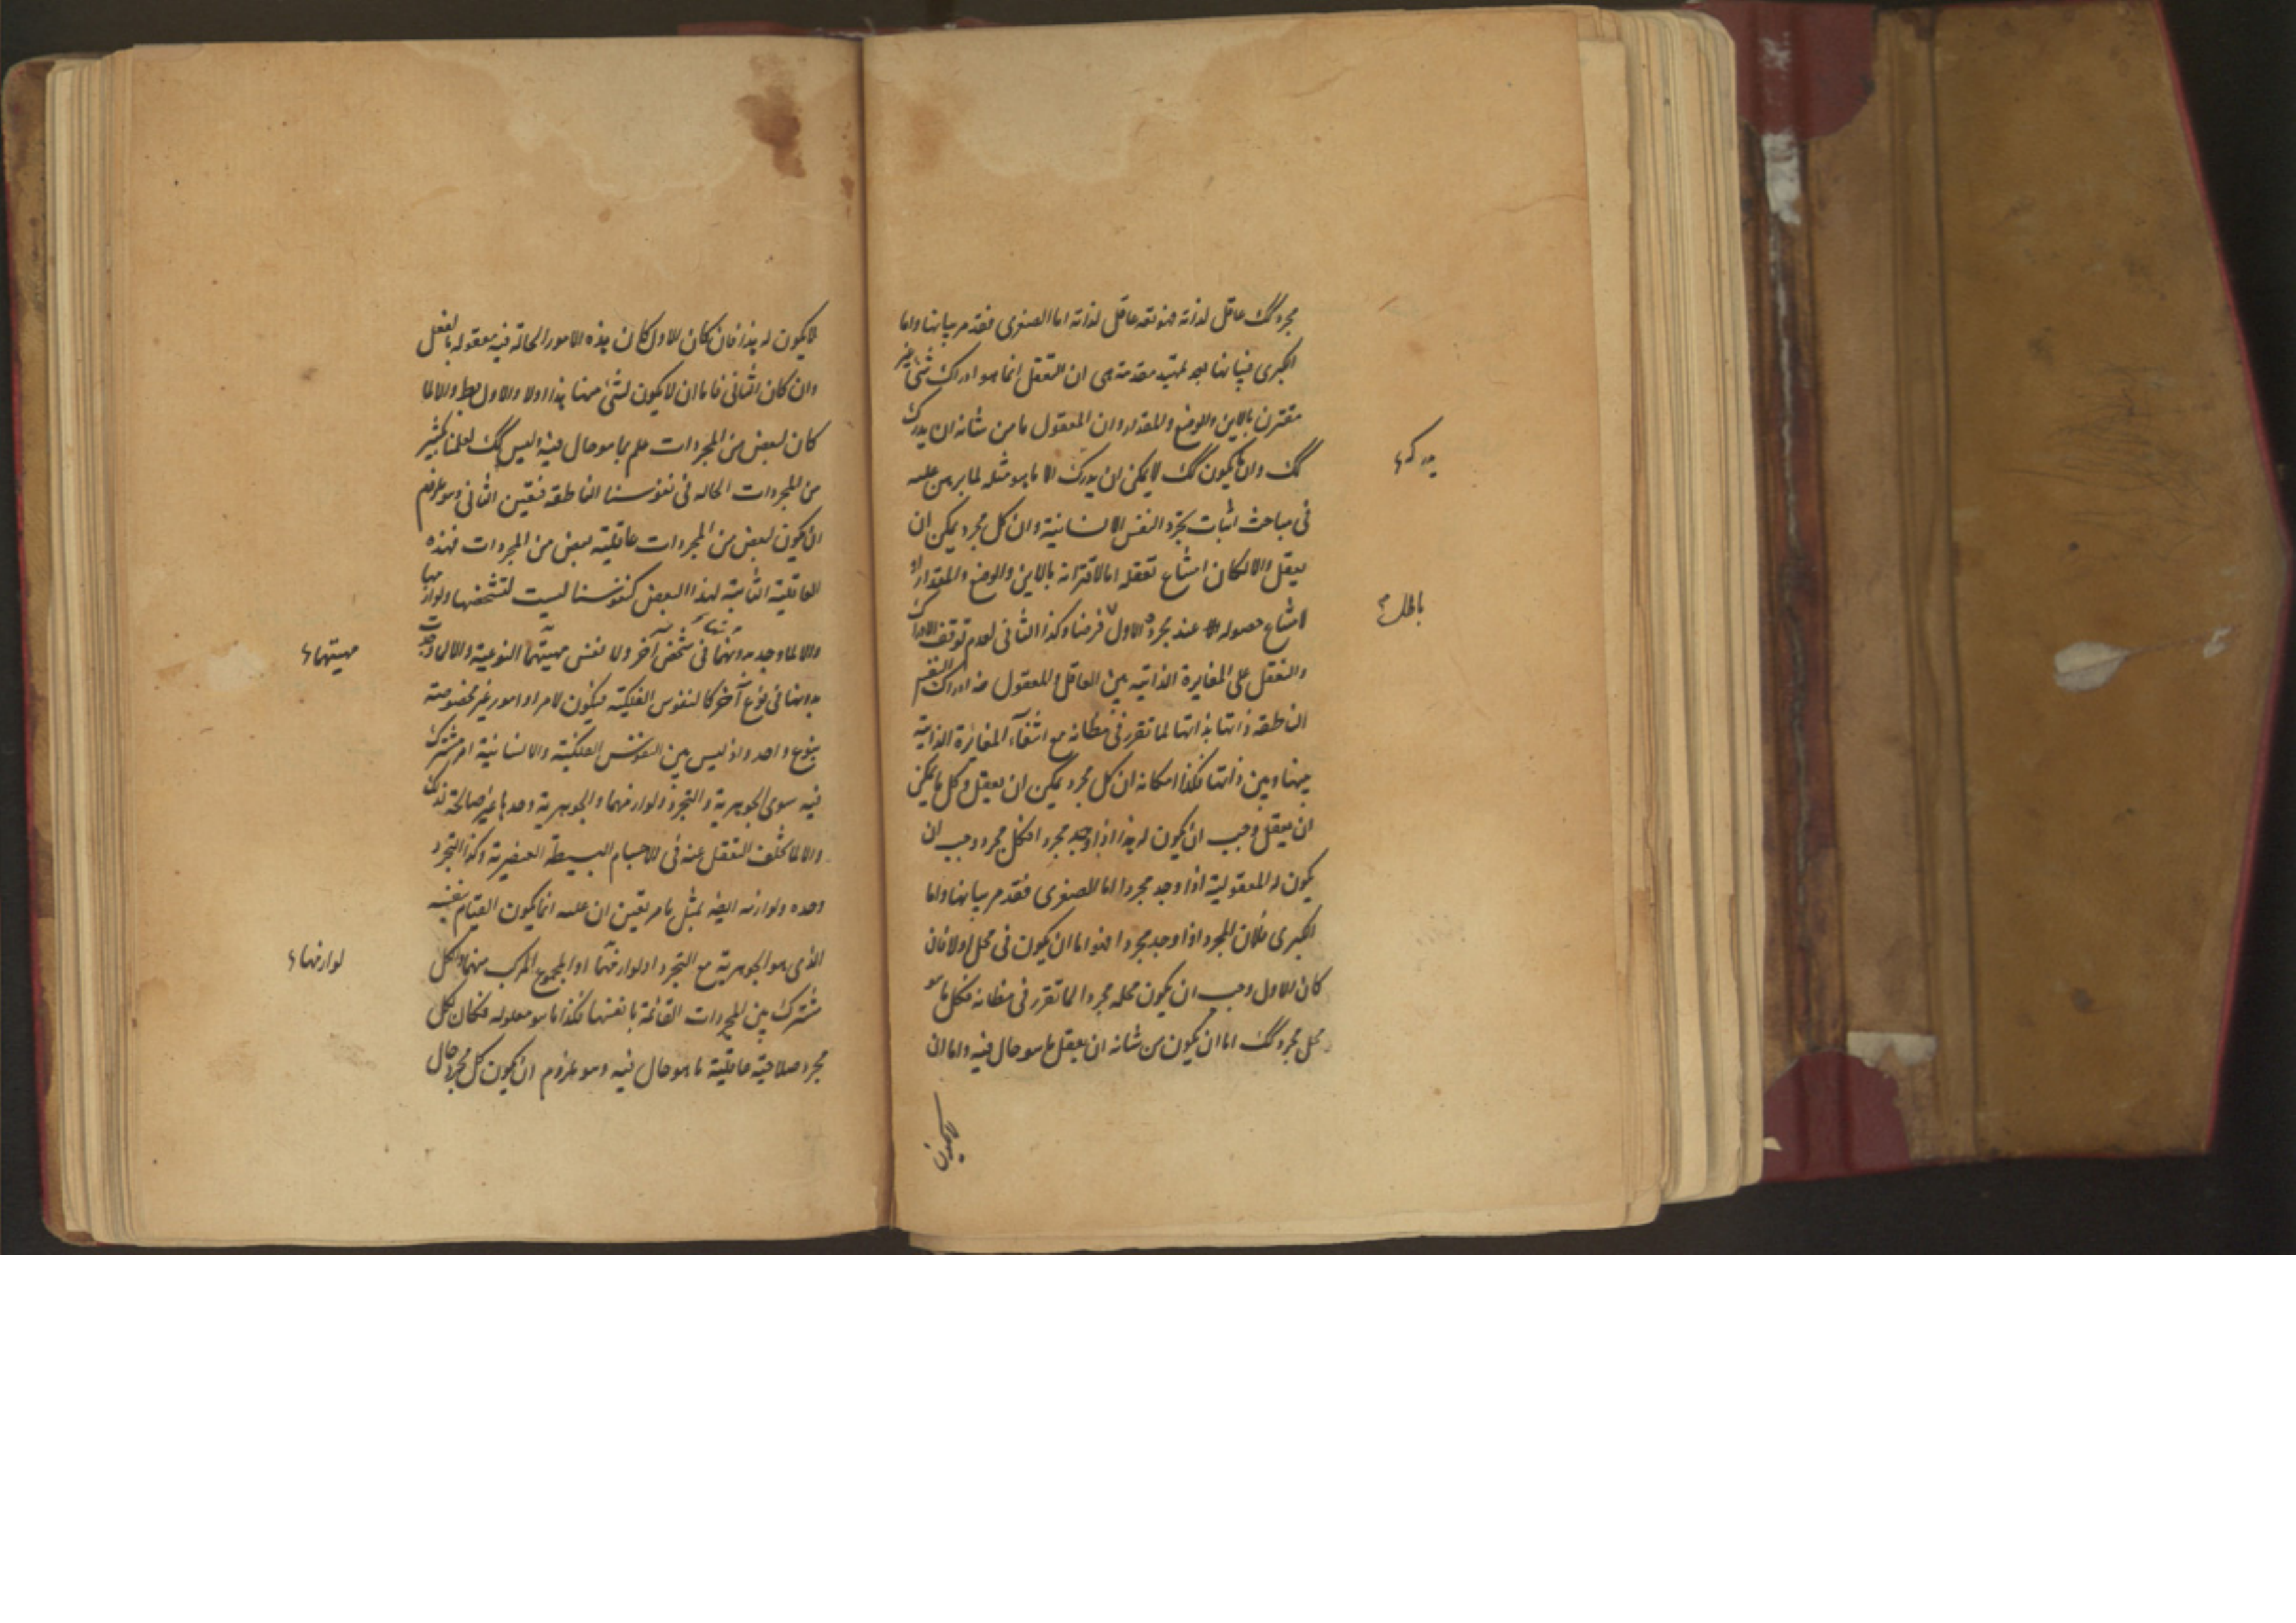 مجرد كك عاقل لذاته فهو تعه عاقل لذاته اما الصغرى فقد مر بيانها واما
الكبرى فبيانها بعد تمهيد مقدمة هى ان التعقل انما هو ادراك شئ غير
مقترن بالاين والوضع والمقدار وان المعقول ما من شانه ان يدرك
كك وان ما يكون كك لا يمكن ان يدركه الا ما هو مثله لما برهن عليه
فى مباحث اثبات تجرد النفس الانسانية وان كل مجرد يمكن ان
يعقل والا لكان امتناع تعقله اما لاقترانه بالاين والوضع والمقدار او
لامتناع حصوله عند مجرد والاول فرضنا وكذا الثانى لعدم توقف الادراك
والتعقل على المغايرة الذاتيه بين العاقل والمعقول ادراك النفس
الناطقه ذاتها بذاتها لما تقرر فى مظانه مع انتفاء المغايرة الذاتية
بينها وبين ذاتها فكذا امكانه ان كل مجرد يمكن ان يعقل وكل ما يمكن
ان يعقل وجب ان يكون له هذا اذا وجد مجردا فكل مجرد وجب ان
يكون له المعقولية اذا وجد مجردا اما الصغرى فقد مر بيانها واما
الكبرى فلان المجرد اذا وجد مجردا فهو اما ان يكون فى محل اولا فان
كان الاول وجب ان يكون محله مجردا لما تقرر فى مظانه فكل ما هو
محل مجرد كك اما ان يكون من شانه ان يعقل ما هو حال فيه واما ان
يدركه
باطل
لا يكون
لا يكون له هذا فان كان الاول كان هذه الامور الحالة فيه معقوله بالفعل
وان كان الثانى فاما ان لا يكون لشئ منها هذا اولا والاول بط والا لما
كان لبعض من المجردات علم بما هو حال فيه وليس كك لعلمنا بكثير
من المجردات الحاله فى نفوسنا الناطقه فتعين الثانى وهو ملزوم
ان يكون لبعض من المجردات عاقليه بعض من المجردات فهذه
العاقلية الثابتة لهذا البعض كنفوسنا ليست لتشخصها ولوازمها
والا لما وجد بدونهما فى شخص آخر ولا لنفس مهيتها النوعية والا لما وجدت
بدونها فى نوع آخر كالنفوس الفلكية فيكون لامر او امور غير مخصوصة
بنوع واحد واذ ليس بين النفوس الفلكية والانسانية امر مشترك
فيه سوى الجوهرية والتجرد ولوازمهما والجوهرية وحدها غير صالحة لذلك
والا لما تخلف التعقل عنه فى الاجسام البسيطة العنصرية وكذا التجرد
وحده ولوازمه ايضا بمثل ما مر تعين ان علته انما يكون القيام بنفسه
الذى هو الجوهرية مع التجرد او لوازمهما او المجموع المركب منهما والكل
مشترك بين المجردات القائمة بانفسها فكذا ما هو معلوله فكان لكل
مجرد صلاحية عاقلية ما هو حال فيه وهو ملزوم ان يكون كل مجرد حال
مهيتها
لوازمها